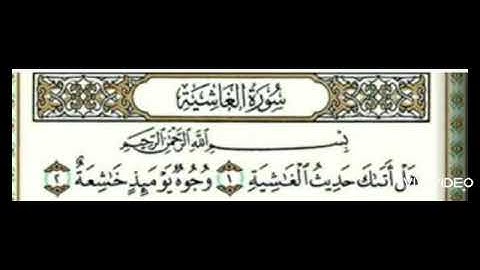 سُورَةُ الْغَاشِيَةِ
بِسْمِ اللَّهِ الرَّحْمَٰنِ الرَّحِيمِ
هَلْ أَتَىٰكَ حَدِيثُ ٱلْغَٰشِيَةِ ١ وُجُوهٌ يَوْمَئِذٍ خَٰشِعَةٌ ٢
VIDEO